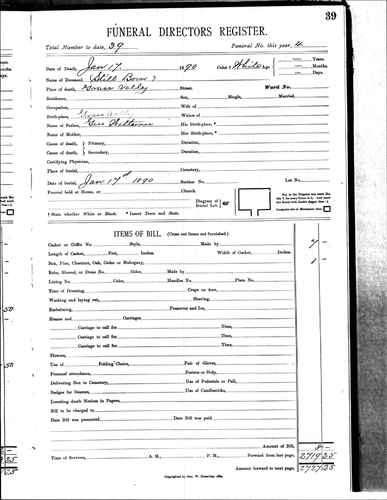 39
FUNERAL DIRECTORS REGISTER.
Total Number to date, 39 Funeral No. this year, 4
Date of Death, Jan 17. 1890 Color † White Age Years.
Months.
Days.
Name of Deceased, (Still Born)
Place of death, Grass Valley Street. Ward No.
Residence, Sex, Single, Married,
Occupation, Wife of
Birth-place, Grass Valley Widow of
Name of Father, Geo His Birth-place, *
Name of Mother, Her Birth-place, *
Cause of death, Primary, Duration,
Cause of death, Secondary, Duration,
Certifying Physician,
Place of burial, Cemetery,
Date of burial, Jan 17th 1890 Section No. Lot No.
Funeral held at Home, or Church.
Diagram of Burial Lot.
† State whether White or Black. * Insert Town and State.
ITEMS OF BILL. (Cross out items not furnished.)
Casket or Coffin No. Style, Made by 7 -
Length of Casket, Feet, Inches. Width of Casket, Inches.
Box, Pine, Chestnut, Oak, Cedar or Mahogany, 1 -
Robe, Shroud, or Dress No. Color, Made by
Lining No. Color, Handles No. Plate No.
Time of Dressing, Crape on door,
Washing and laying out, Shaving,
Embalming, Preserver and Ice,
Hearse and Carriages
Carriage to call for Time,
Carriage to call for Time,
Carriage to call for Time,
Carriage to call for Time,
Flowers,
Use of Folding Chairs, Pair of Gloves,
Personal attendance, Porters or Help,
Delivering Box to Cemetery, Use of Pedestals or Pall,
Badges for Bearers, Use of Candlesticks,
Inserting death Notices in Papers,
Bill to be charged to
Date Bill was presented Date Bill was paid
Amount of Bill, 8 -
Time of Services, A. M., P. M. Forward from last page, 2719 25
Amount forward to next page, 2727 25